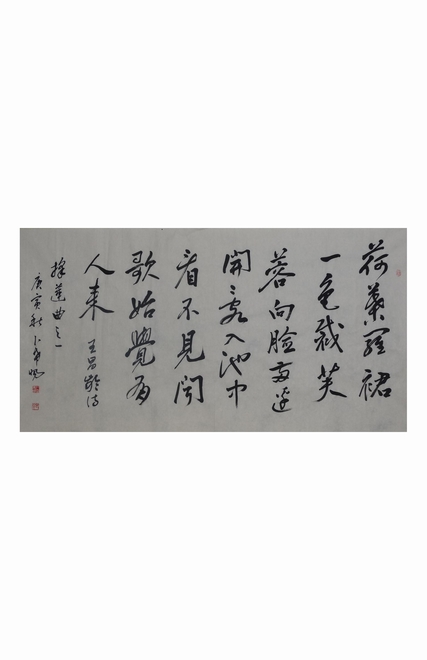 荷葉羅裙
一色裁芙
蓉向臉兩邊
開亂入池中
看不見聞
歌始覺有
人来 王昌齡詩
採蓮曲之一
庚寅秋